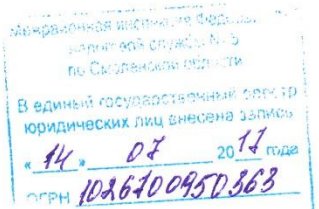 Межрайонная инспекция Федеральной
налоговой службы № 5
по Смоленской области
В единый государственный реестр
юридических лиц внесена запись
« 14 » 07 2017 года
ОГРН 1026700950363